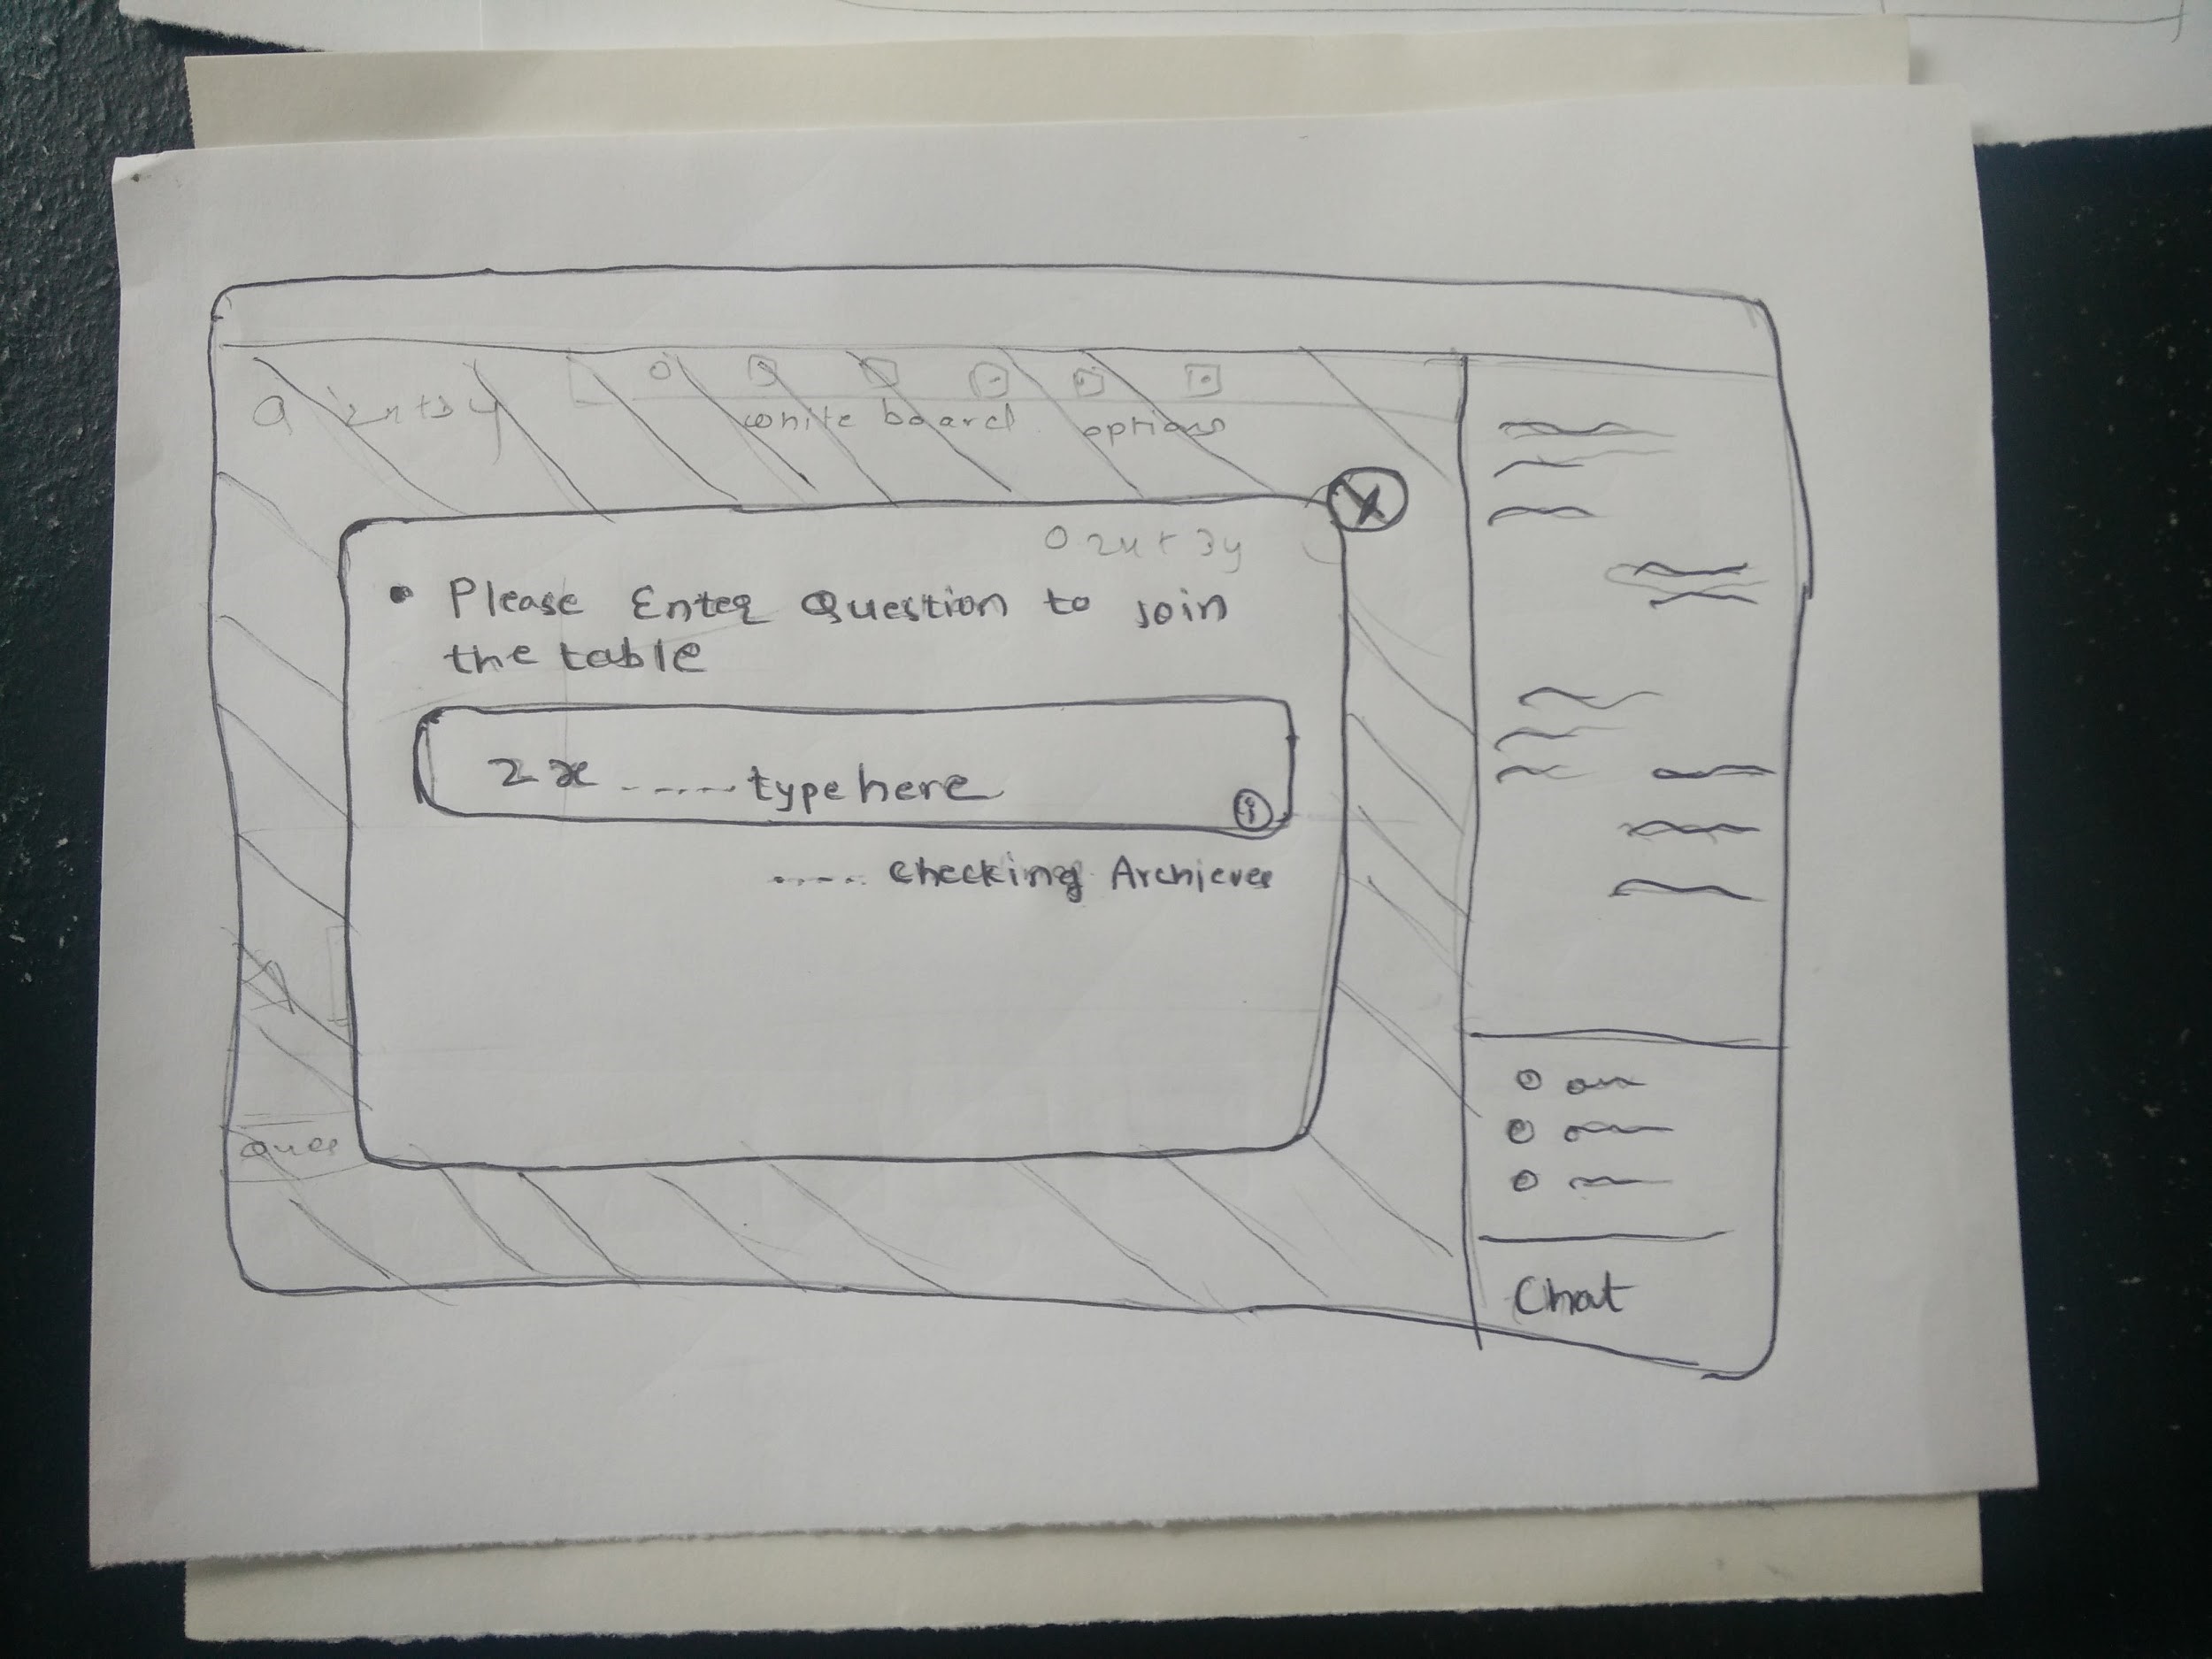 Q 2x+3y
white board options
O 2x + 3y
• Please Enter Question to join
the table
2x ...... type here
..... checking Archieves
Ques
Chat